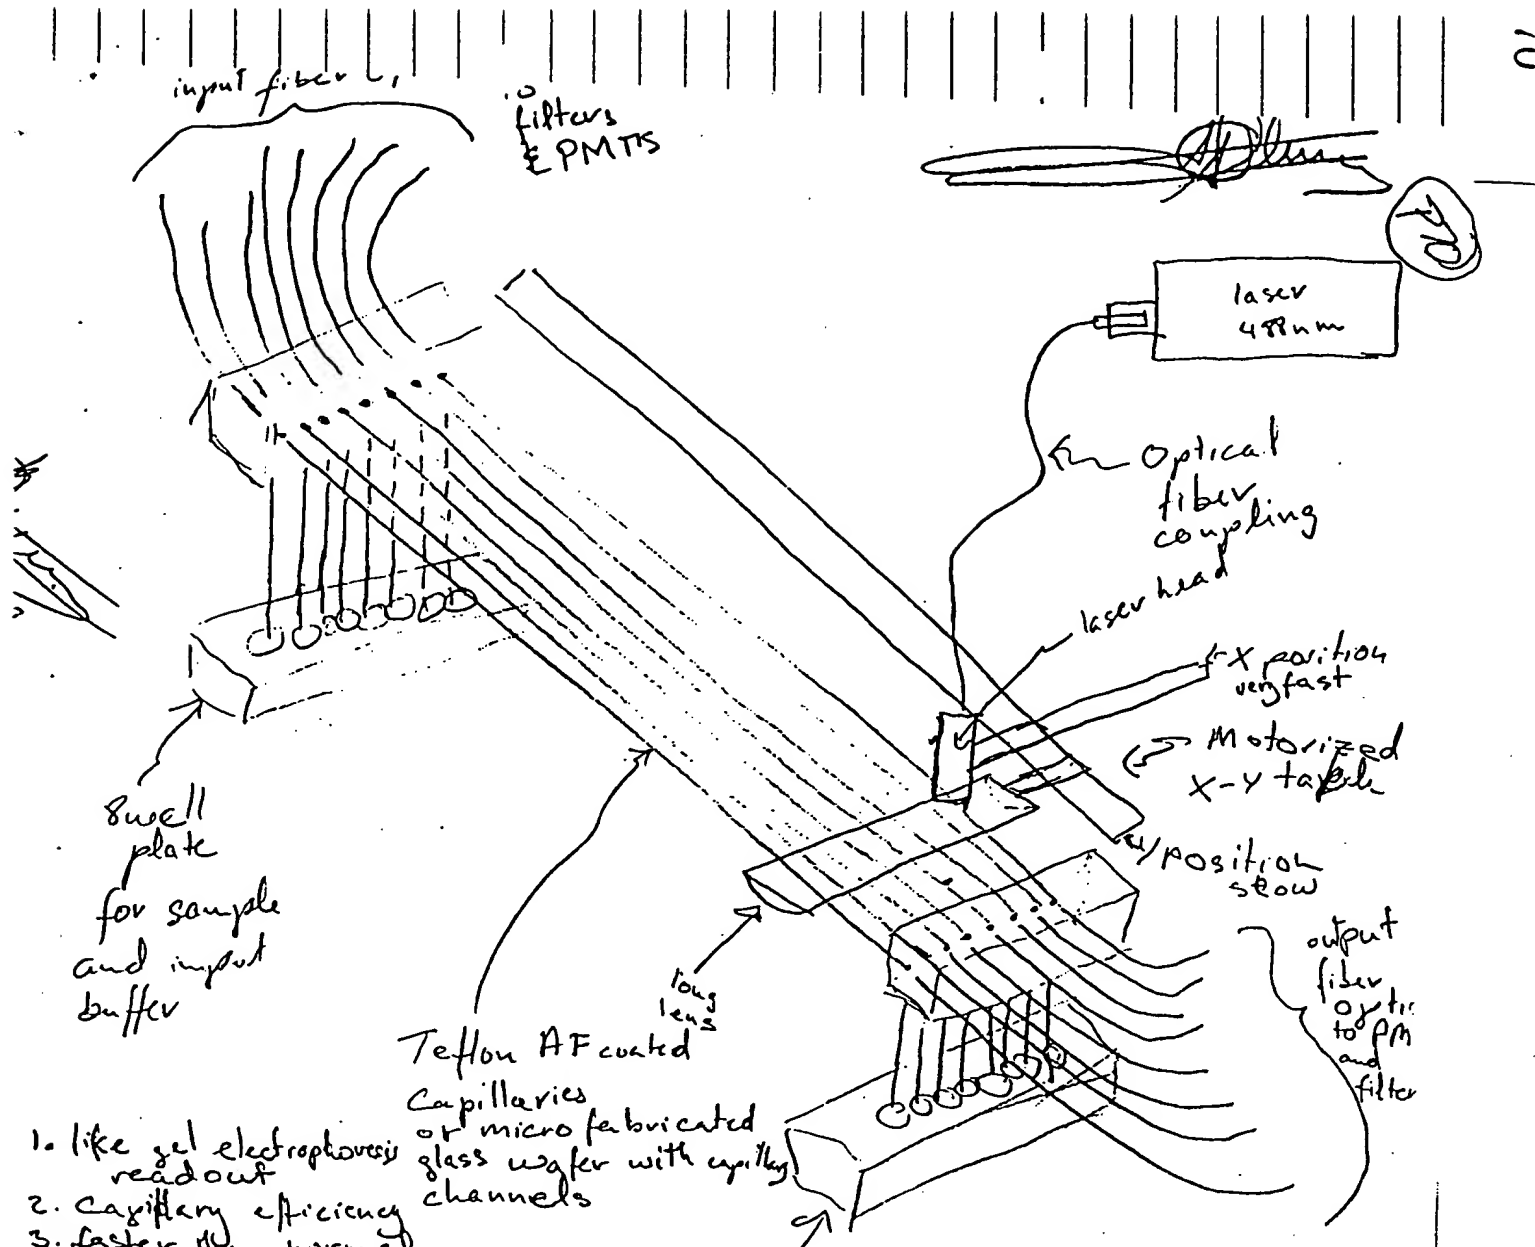 input fiber
filters
& PMT's
laser
488nm
Optical
fiber
coupling
laser head
X position
very fast
Motorized
X-Y table
Y position
slow
8 well
plate
for sample
and input
buffer
long
lens
output
fiber
to PM
and
filter
Teflon AF coated
Capillaries
or micro fabricated
glass wafer with capillary
channels
1. like gel electrophoresis
readout
2. Capillary efficiency
3. faster